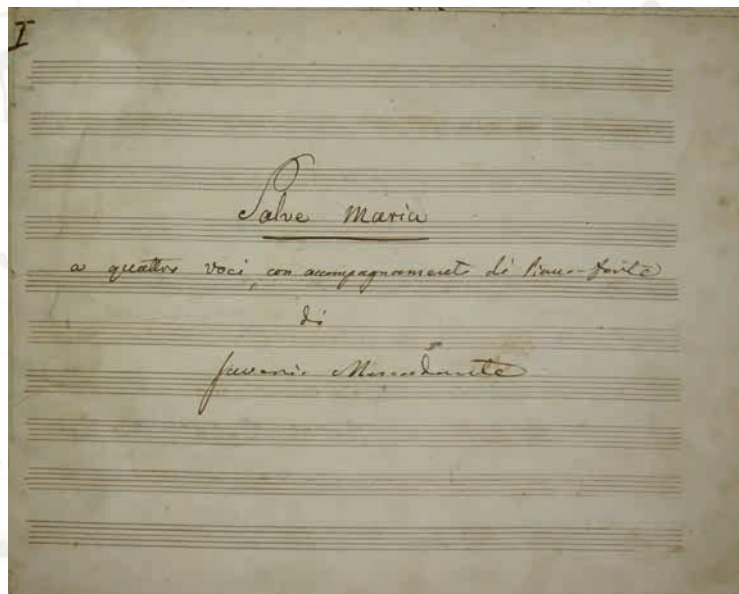 I
Salve Maria
a quattro voci, con accompagnamento di Piano-forte
di
Saverio Mercadante